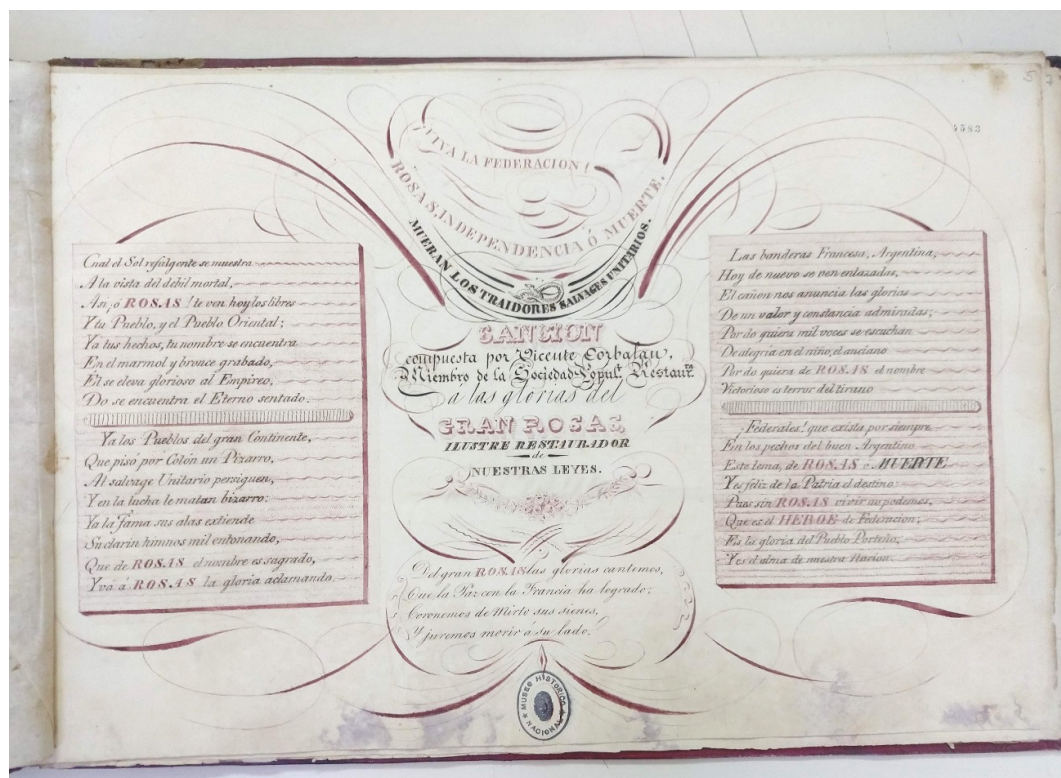 ¡VIVA LA FEDERACION!
ROSAS, INDEPENDENCIA Ó MUERTE.
MUERAN LOS TRAIDORES SALVAGES UNITARIOS.
CANCION
compuesta por Vicente Corbalan,
Miembro de la Sociedad Popul.ᴿ Restaur.ᴿᴬ
a las glorias del
GRAN ROSAS,
ILUSTRE RESTAURADOR
de
NUESTRAS LEYES.
Del gran ROSAS las glorias cantemos,
Que la Paz con la Francia ha logrado;
Coronemos de Mirto sus sienes,
Y juremos morir á su lado.
Cual el Sol refulgente se muestra
A la vista del debil mortal,
Asi, ó ROSAS! te ven hoy los libres
Y tu Pueblo, y el Pueblo Oriental;
Ya tus hechos, tu nombre se encuentra
En el marmol y bronce grabado,
El se eleva glorioso al Empireo,
Do se encuentra el Eterno sentado.
Ya los Pueblos del gran Continente,
Que pisó por Colón un Pizarro,
Al salvage Unitario persiguen,
Y en la lucha le matan bizarro:
Ya la fama sus alas extiende
Su clarin himnos mil entonando,
Que de ROSAS el nombre es sagrado,
Y vá á ROSAS la gloria aclamando.
Las banderas Francesa, Argentina,
Hoy de nuevo se ven enlazadas,
El cañon nos anuncia las glorias
De un valor y constancia admiradas;
Por do quiera mil voces se escuchan
De alegria en el niño, el anciano
Por do quiera de ROSAS el nombre
Victorioso es terror del tirano
¡Federales! que exista por siempre
En los pechos del buen Argentino
Este lema, de ROSAS ó MUERTE
Y es feliz de la Patria el destino:
Pues sin ROSAS vivir no podemos,
Que es el HEROE de Federacion;
Es la gloria del Pueblo Porteño,
Y es el alma de nuestra Nacion.
MUSEO HISTORICO NACIONAL
4583
57